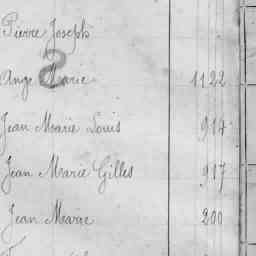 Pierre Joseph
Ange Marie 1122
Jean Marie Louis 917
Jean Marie Gilles 917
Jean Marie 200